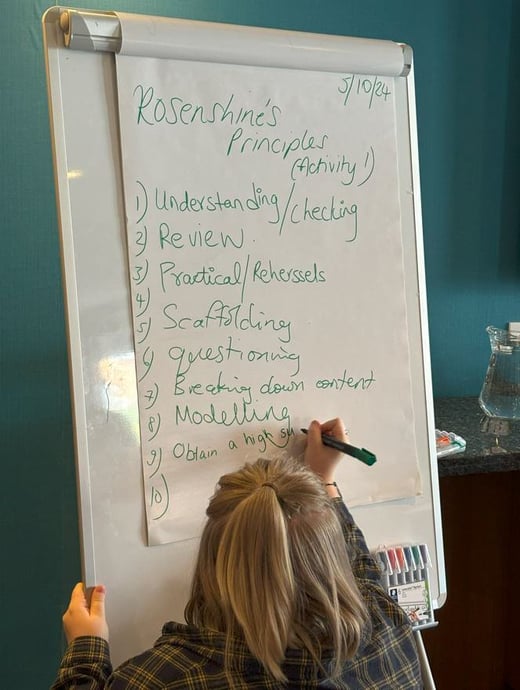 5/10/24
Rosenshine's
Principles
(Activity 1)
1) Understanding/Checking
2) Review.
3) Practical/Reherssels
4)
5) Scaffolding
6) questioning
7) Breaking down content
8) Modelling
9) Obtain a high su
10)